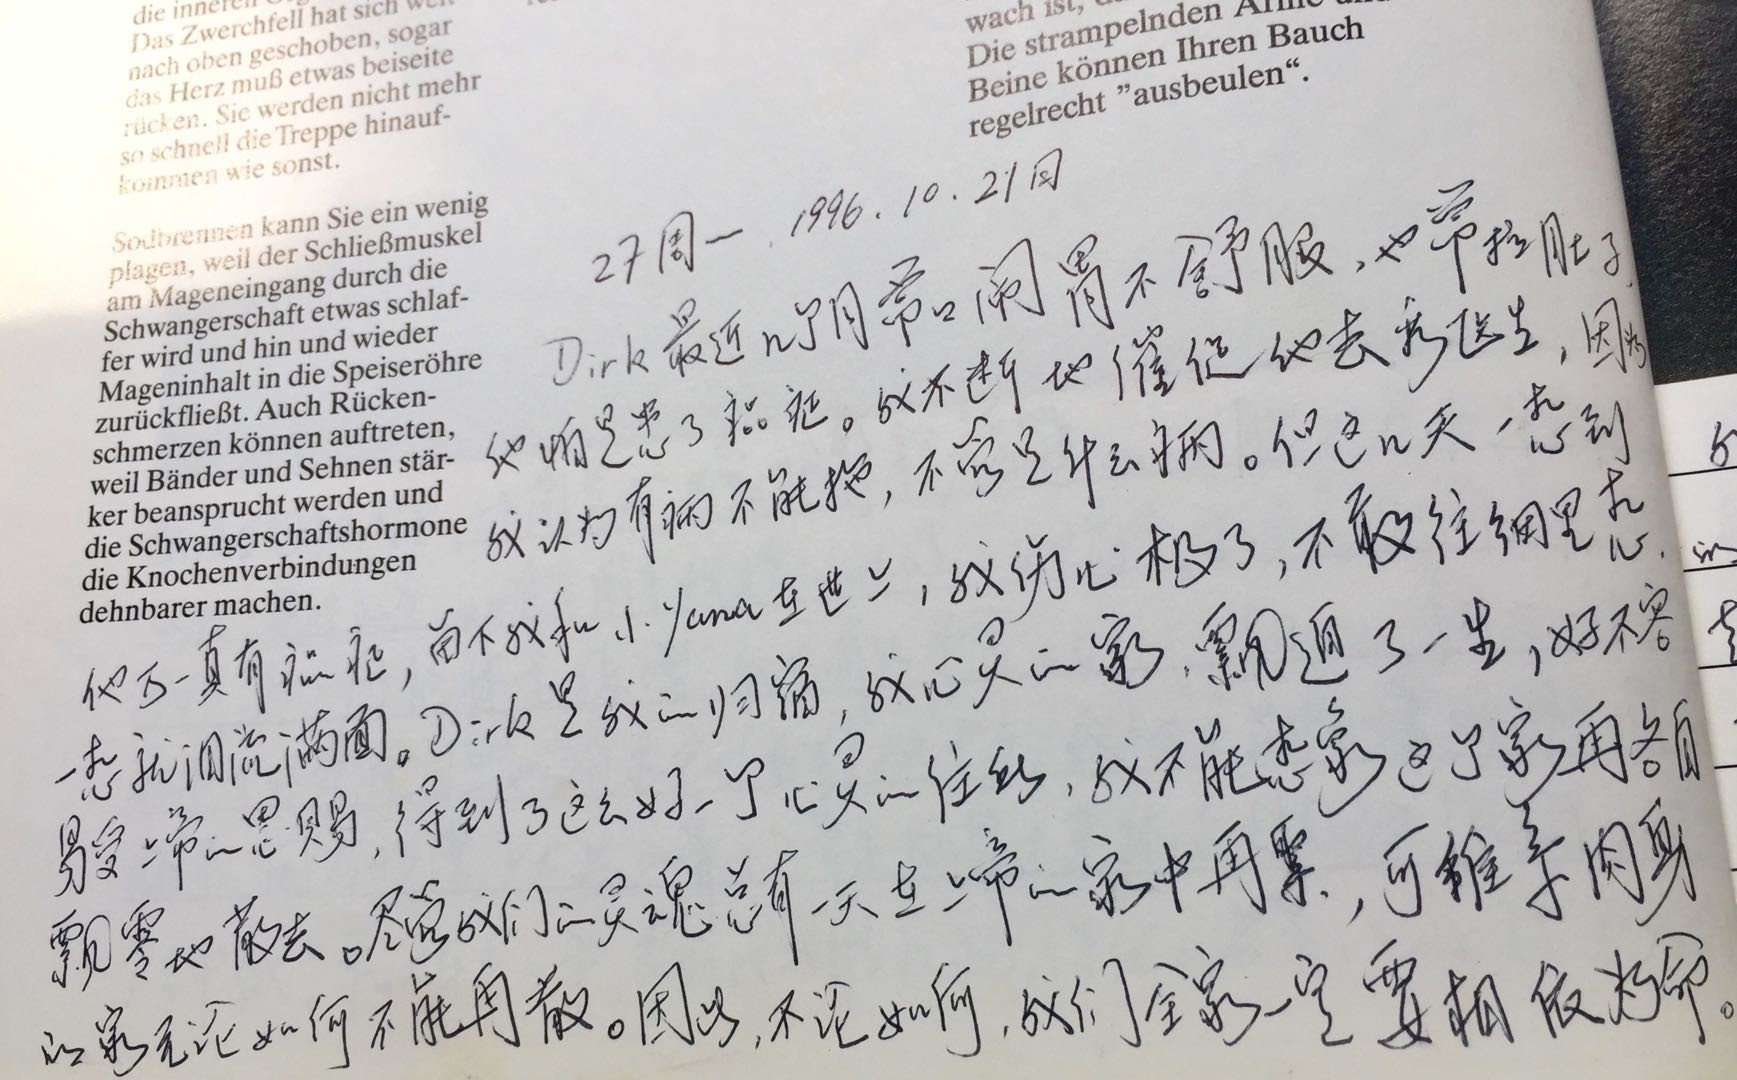 die inneren
Das Zwerchfell hat sich weit
nach oben geschoben, sogar
das Herz muß etwas beiseite
rücken. Sie werden nicht mehr
so schnell die Treppe hinauf-
kommen wie sonst.
Sodbrennen kann Sie ein wenig
plagen, weil der Schließmuskel
am Mageneingang durch die
Schwangerschaft etwas schlaf-
fer wird und hin und wieder
Mageninhalt in die Speiseröhre
zurückfließt. Auch Rücken-
schmerzen können auftreten,
weil Bänder und Sehnen stär-
ker beansprucht werden und
die Schwangerschaftshormone
die Knochenverbindungen
dehnbarer machen.
wach ist,
Die strampelnden Arme und
Beine können Ihren Bauch
regelrecht "ausbeulen".
27周一 1996.10.21日
Dirk最近几个月常闹胃不舒服,也常拉肚子,
他怕是患了癌症。我不断地催促他去看医生,因为
我认为有病不能拖,不管是什么病。但这几天一想到
他万一真有癌症,留下我和小Yana在世上,我伤心极了,不敢往细里想,
一想就泪流满面。Dirk是我的归宿,我心灵的家,飘泊了一生,好不容
易受上帝的恩赐,得到了这么好一个心灵的住处,我不能想象这个家再各自
飘零地散去。尽管我们的灵魂总有一天在上帝的家中再聚,可维系肉身
的家无论如何不能再散。因此,不论如何,我们全家一定要相依为命。